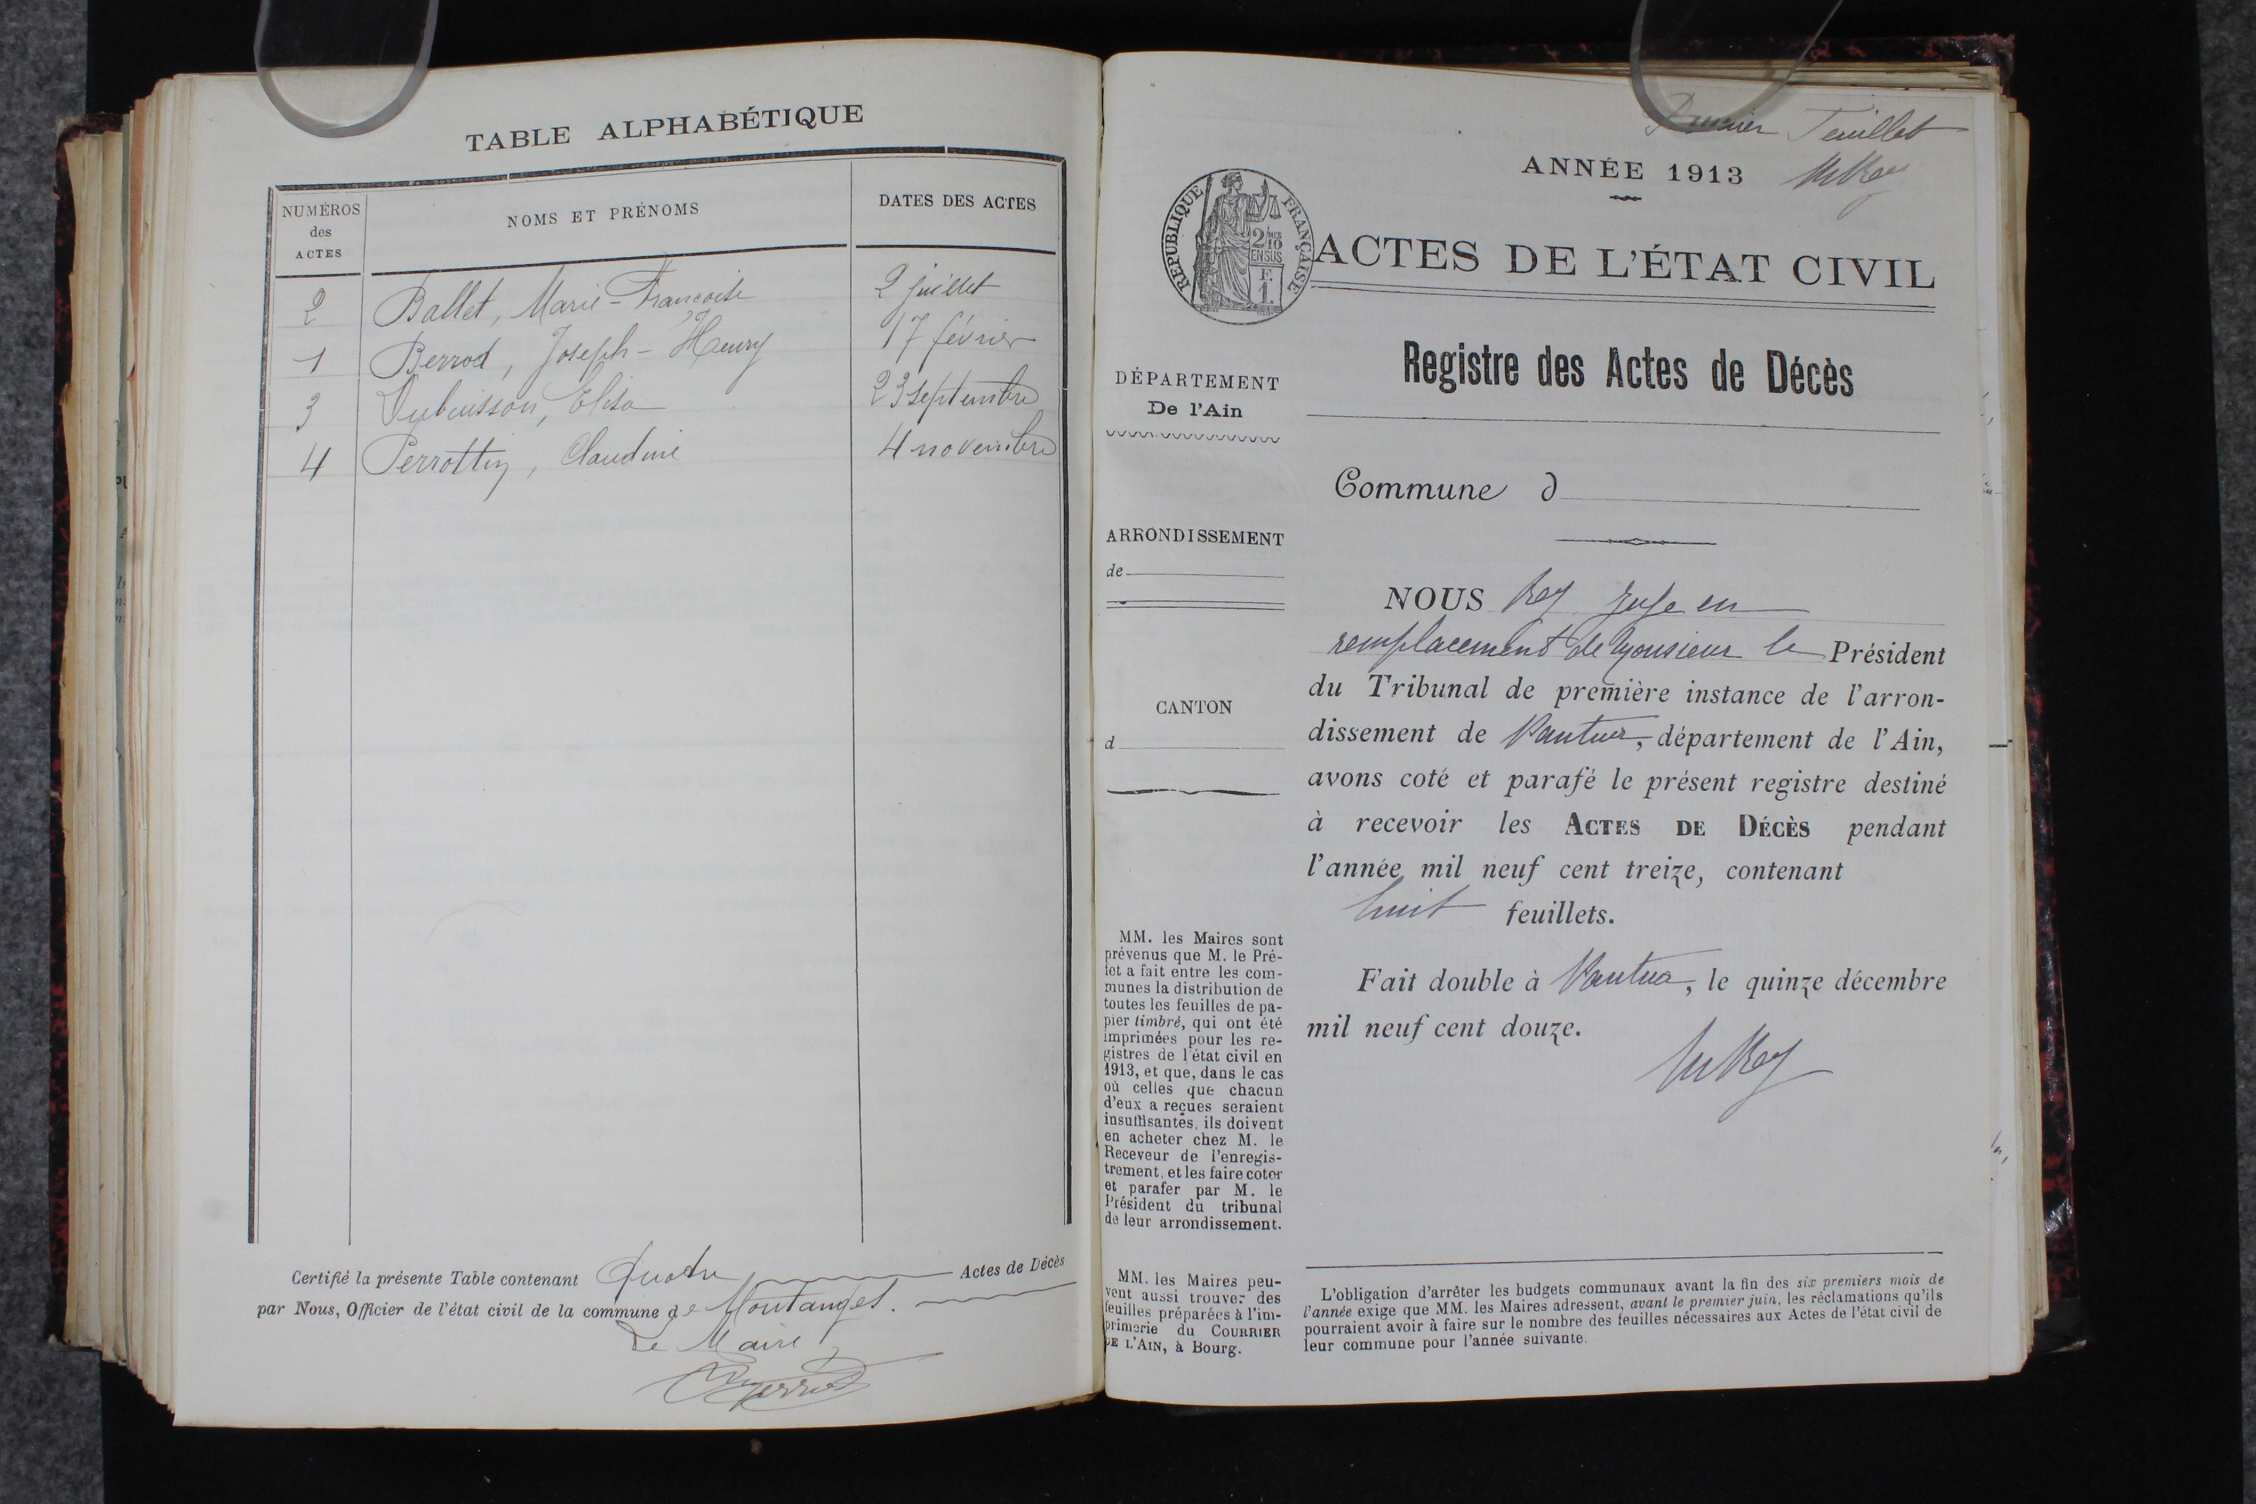 TABLE ALPHABÉTIQUE
NUMÉROS
des
ACTES
NOMS ET PRÉNOMS
DATES DES ACTES
2 Ballet, Marie-Françoise 2 juillet
1 Berrod, Joseph-Henry 17 février
3 Dubuisson, Elisa 23 septembre
4 Perrottin, Claudine 4 novembre
Certifié la présente Table contenant Quatre Actes de Décès
par Nous, Officier de l'état civil de la commune de Montanges.
Le Maire
Premier Feuillet
ANNÉE 1913
RÉPUBLIQUE FRANÇAISE
2/10
EN SUS
ACTES DE L'ÉTAT CIVIL
Registre des Actes de Décès
DÉPARTEMENT
De l'Ain
Commune d
ARRONDISSEMENT
de
CANTON
d
NOUS Rey Juge en
remplacement de Monsieur le Président
du Tribunal de première instance de l'arron-
dissement de Nantua, département de l'Ain,
avons coté et parafé le présent registre destiné
à recevoir les ACTES DE DÉCÈS pendant
l'année mil neuf cent treize, contenant
huit feuillets.
Fait double à Nantua, le quinze décembre
mil neuf cent douze.
MM. les Maires sont
prévenus que M. le Pré-
fet a fait entre les com-
munes la distribution de
toutes les feuilles de pa-
pier timbré, qui ont été
imprimées pour les re-
gistres de l'état civil en
1913, et que, dans le cas
où celles que chacun
d'eux a reçues seraient
insuffisantes, ils doivent
en acheter chez M. le
Receveur de l'enregis-
trement, et les faire coter
et parafer par M. le
Président du tribunal
de leur arrondissement.
MM. les Maires peu-
vent aussi trouver des
feuilles préparées à l'im-
primerie du COURRIER
DE L'AIN, à Bourg.
L'obligation d'arrêter les budgets communaux avant la fin des six premiers mois de
l'année exige que MM. les Maires adressent, avant le premier juin, les réclamations qu'ils
pourraient avoir à faire sur le nombre des feuilles nécessaires aux Actes de l'état civil de
leur commune pour l'année suivante.